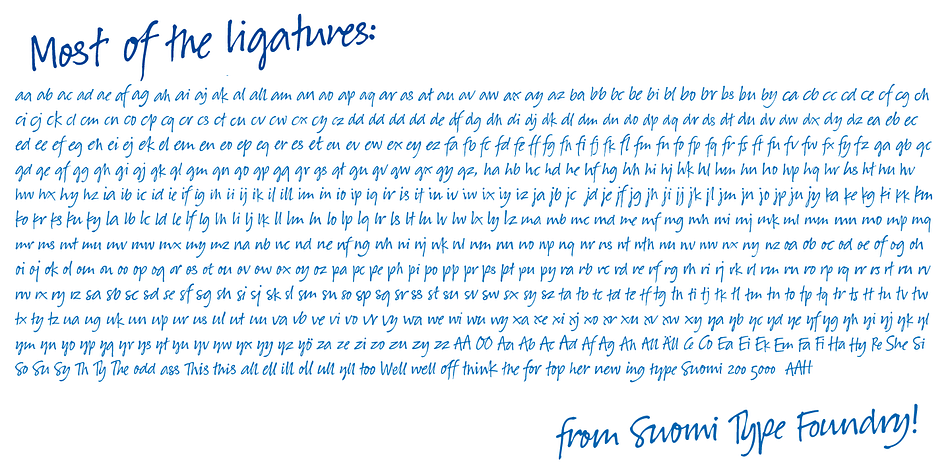 Most of the ligatures:
aa ab ac ad ae af ag ah ai aj ak al all am an ao ap aq ar as at au av aw ax ay az ba bb bc be bi bl bo br bs bu by ca cb cc cd ce cf cg ch
ci cj ck cl cm cn co cp cq cr cs ct cu cv cw cx cy cz dd dd dd dd de df dg dh di dj dk dl dm dn do dp dq dr ds dt du dv dw dx dy dz ea eb ec
ed ee ef eg eh ei ej ek el em en eo ep eq er es et eu ev ew ex ey ez fa fb fc fd fe ff fg fh fi fj fk fl fm fn fo fp fq fr fs ft fu fv fw fx fy fz ga gb gc
gd ge gf gg gh gi gj gk gl gm gn go gp gq gr gs gt gu gv gw gx gy gz, ha hb hc hd he hf hg hh hi hj hk hl hm hn ho hp hq hr hs ht hu hv
hw hx hy hz ia ib ic id ie if ig ih ii ij ik il ill im in io ip iq ir is it iu iv iw ix iy iz ja jb jc jd je jf jg jh ji jj jk jl jm jn jo jp ju jy ka ke kg ki kk km
ko kr ks ku ky la lb lc ld le lf lg lh li lj lk ll lm ln lo lp lq lr ls lt lu lv lw lx ly lz ma mb mc md me mf mg mh mi mj mk ml mm mn mo mp mq
mr ms mt mu mv mw mx my mz na nb nc nd ne nf ng nh ni nj nk nl nm nn no np nq nr ns nt nth nu nv nw nx ny nz oa ob oc od oe of og oh
oi oj ok ol om on oo op oq or os ot ou ov ow ox oy oz pa pc pe ph pi po pp pr ps pt pu py ra rb rc rd re rf rg rh ri rj rk rl rm rn ro rp rq rr rs rt ru rv
rw rx ry rz sa sb sc sd se sf sg sh si sj sk sl sm sn so sp sq sr ss st su sv sw sx sy sz ta tb tc td te tf tg th ti tj tk tl tm tn to tp tq tr ts tt tu tv tw
tx ty tz ua ug uk un up ur us ul ut uu va vb ve vi vo vr vy wa we wi wu wy xa xe xi xj xo xr xu xv xw xy ya yb yc yd ye yf yg yh yi yj yk yl
ym yn yo yp yq yr ys yt yu yv yw yx yy yz yö za ze zi zo zu zy zz AA OO Aa Ab Ac Ad Af Ag An All Äll Ce Co Ea Ei Ek Em Fa Fi Ha Hy Re She Si
So Su Sy Th Ty The odd ass This this all ell ill oll ull yll too Well well off think the for top her new ing type Suomi 200 5000 AAH
from Suomi Type Foundry!